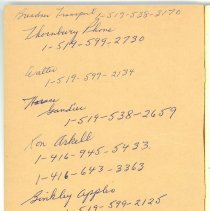 Transport 1-519-538-3170
Thornbury Phone
1-519-599-2730
Walter
1-519-599-2134
1-519-538-2659
Ron Arkell
1-416-945-5433
1-416-643-3363
Binkley Apples
519-599-2125